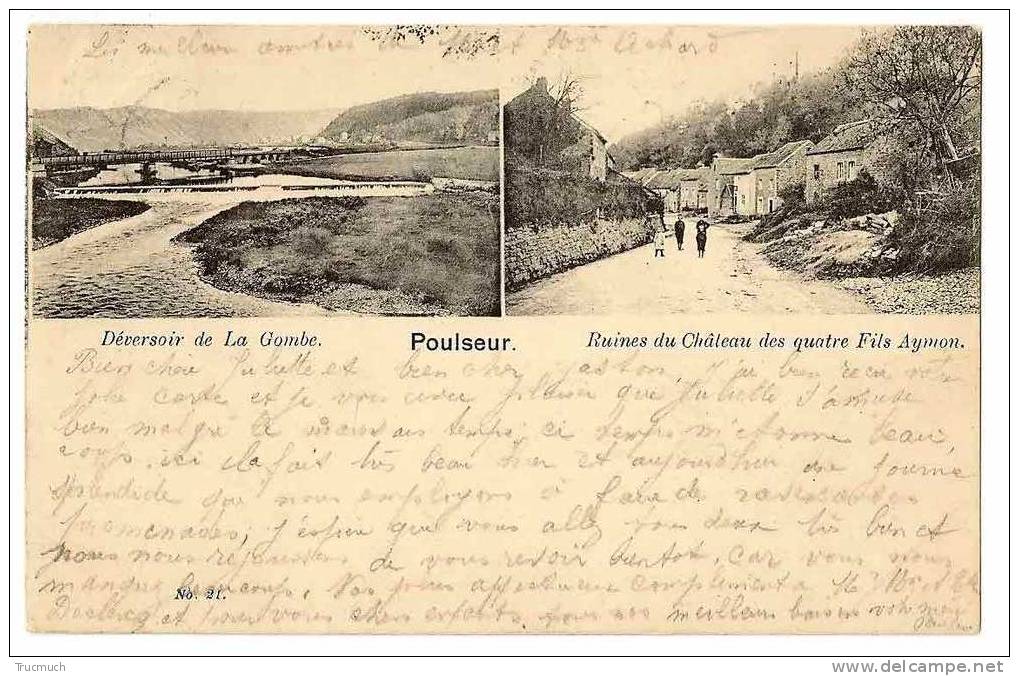 Les meilleurs amitiés de M. et Mme Achard
Déversoir de La Gombe. Poulseur. Ruines du Château des quatre Fils Aymon.
Bien chère Juliette et bien cher Gaston, j'ai bien reçu votre
jolie carte et je vois avec plaisir que Juliette s'amuse
bien malgré le mauvais temps; ce temps m'étonne beau
coup, ici il a fait très beau hier et aujourdhui une journée
splendide que nous employons à faire de
promenades, j'espère que vous allez tous deux très bien et
nous nous réjouissons de vous revoir bientôt, car vous nous
manquez beaucoup,
No. 21.
et pour vous chers enfants, nos meilleurs baisers votre
Trucmuch
www.delcampe.net